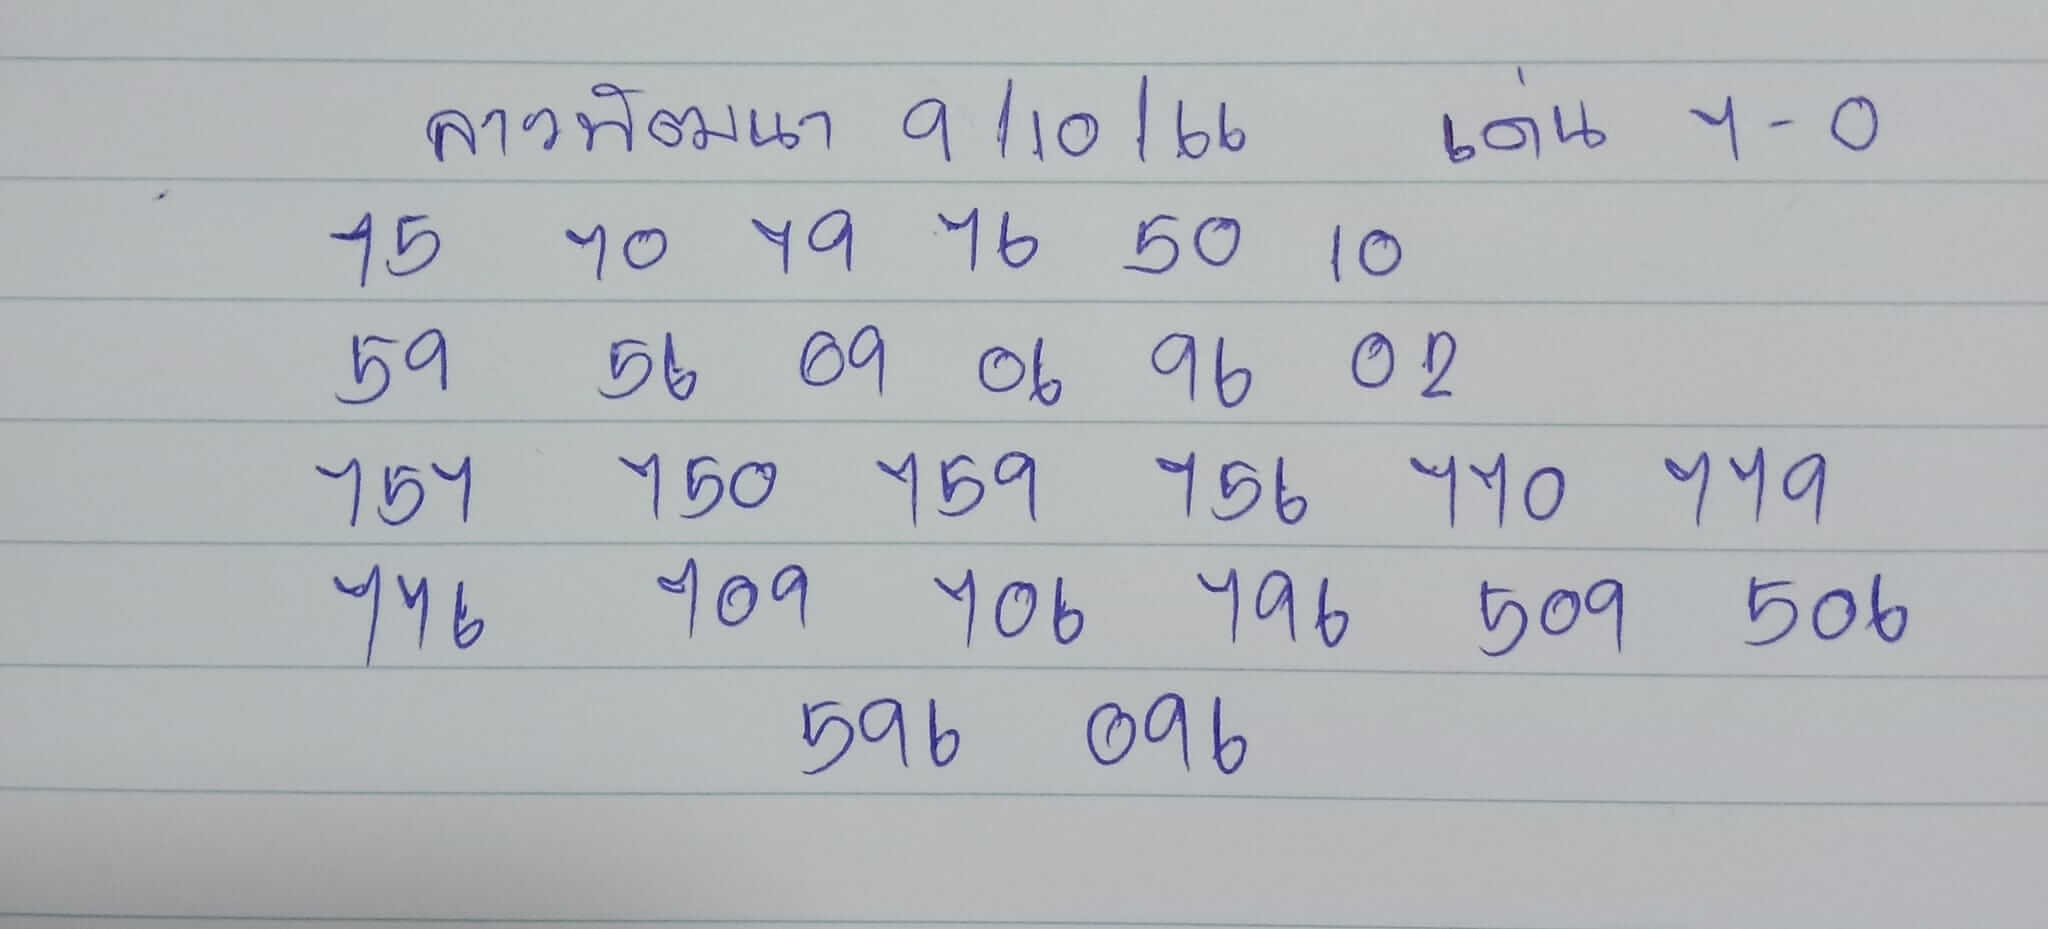 ลาวพัฒนา 9/10/66 เด่น 7-0
75 70 79 76 50 10
59 56 09 06 96 02
757 750 759 756 770 779
776 709 706 796 509 506
596 096